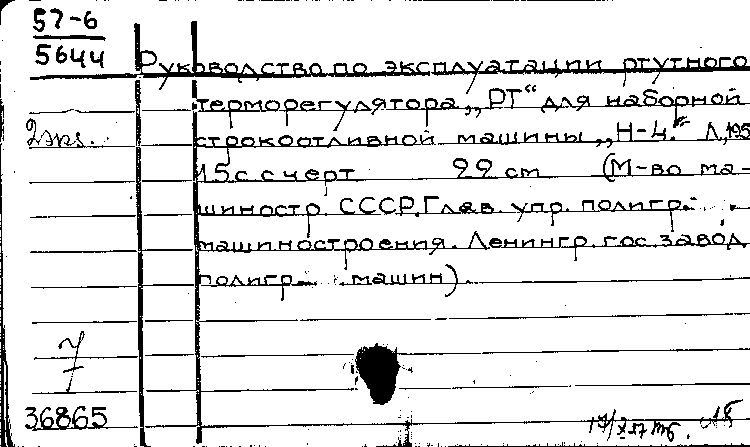 57-6
5644
Руководство по эксплуатации ртутного
терморегулятора „РТ“ для наборной
2 экз.
строкоотливной машины „Н-4.“ Л, 195
15 с с черт 22 cm (М-во ма-
шиностр. СССР. Глав. упр. полигр.
машиностроения. Ленингр. гос. завод
полигр. машин).
7
36865